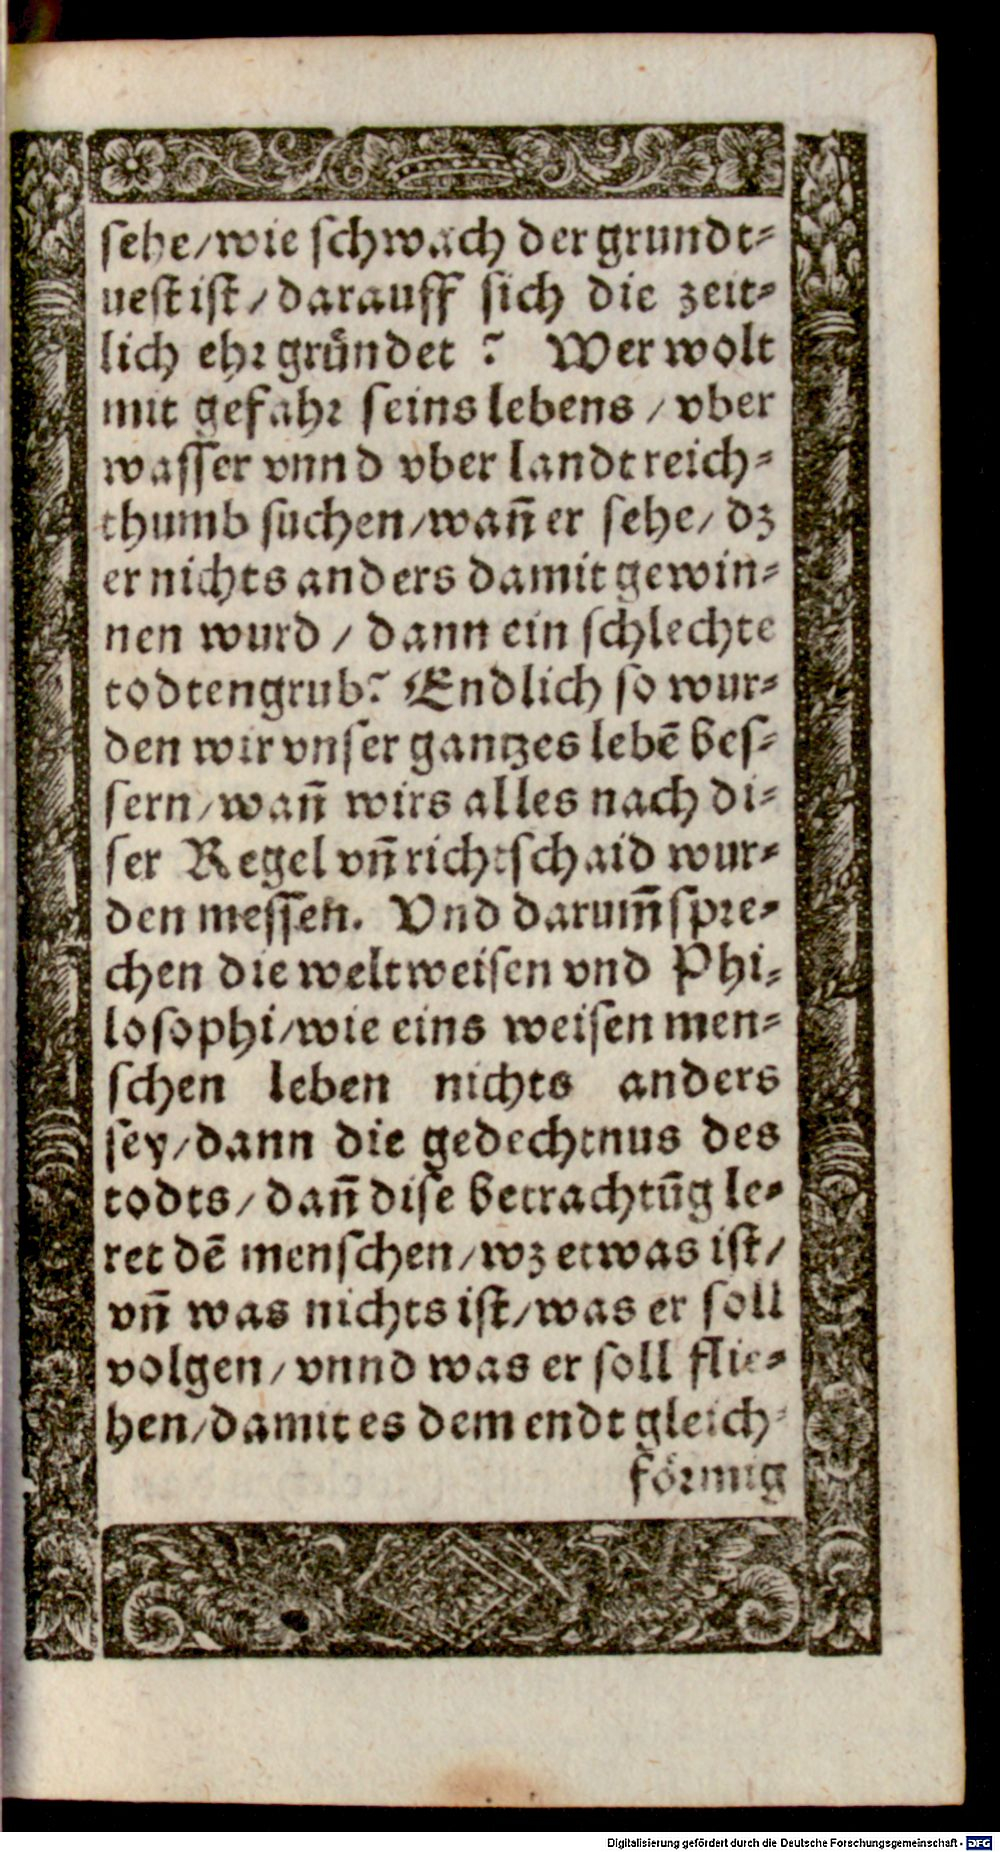 sehe/wie schwach der grundt⸗
uest ist/ darauff sich die zeit⸗
lich ehr gründet ? Wer wolt
mit gefahr seins lebens / vber
wasser vnnd vber landt reich⸗
thumb suchen/wañ er sehe/ dz
er nichts anders damit gewin⸗
nen wurd / dann ein schlechte
todtengrub? Endlich so wur⸗
den wir vnser gantzes lebē bes⸗
sern/wañ wirs alles nach di⸗
ser Regel vñ richtschaid wur⸗
den messen. Vnd darum̃ spre⸗
chen die weltweisen vnd Phi⸗
losophi/wie eins weisen men⸗
schen leben nichts anders
sey/dann die gedechtnus des
todts/ dañ dise betrachtũg le⸗
ret dē menschen/wz etwas ist/
vñ was nichts ist/was er soll
volgen/ vnnd was er soll flie⸗
hen/damit es dem endt gleich⸗
förmig
Digitalisierung gefördert durch die Deutsche Forschungsgemeinschaft - DFG